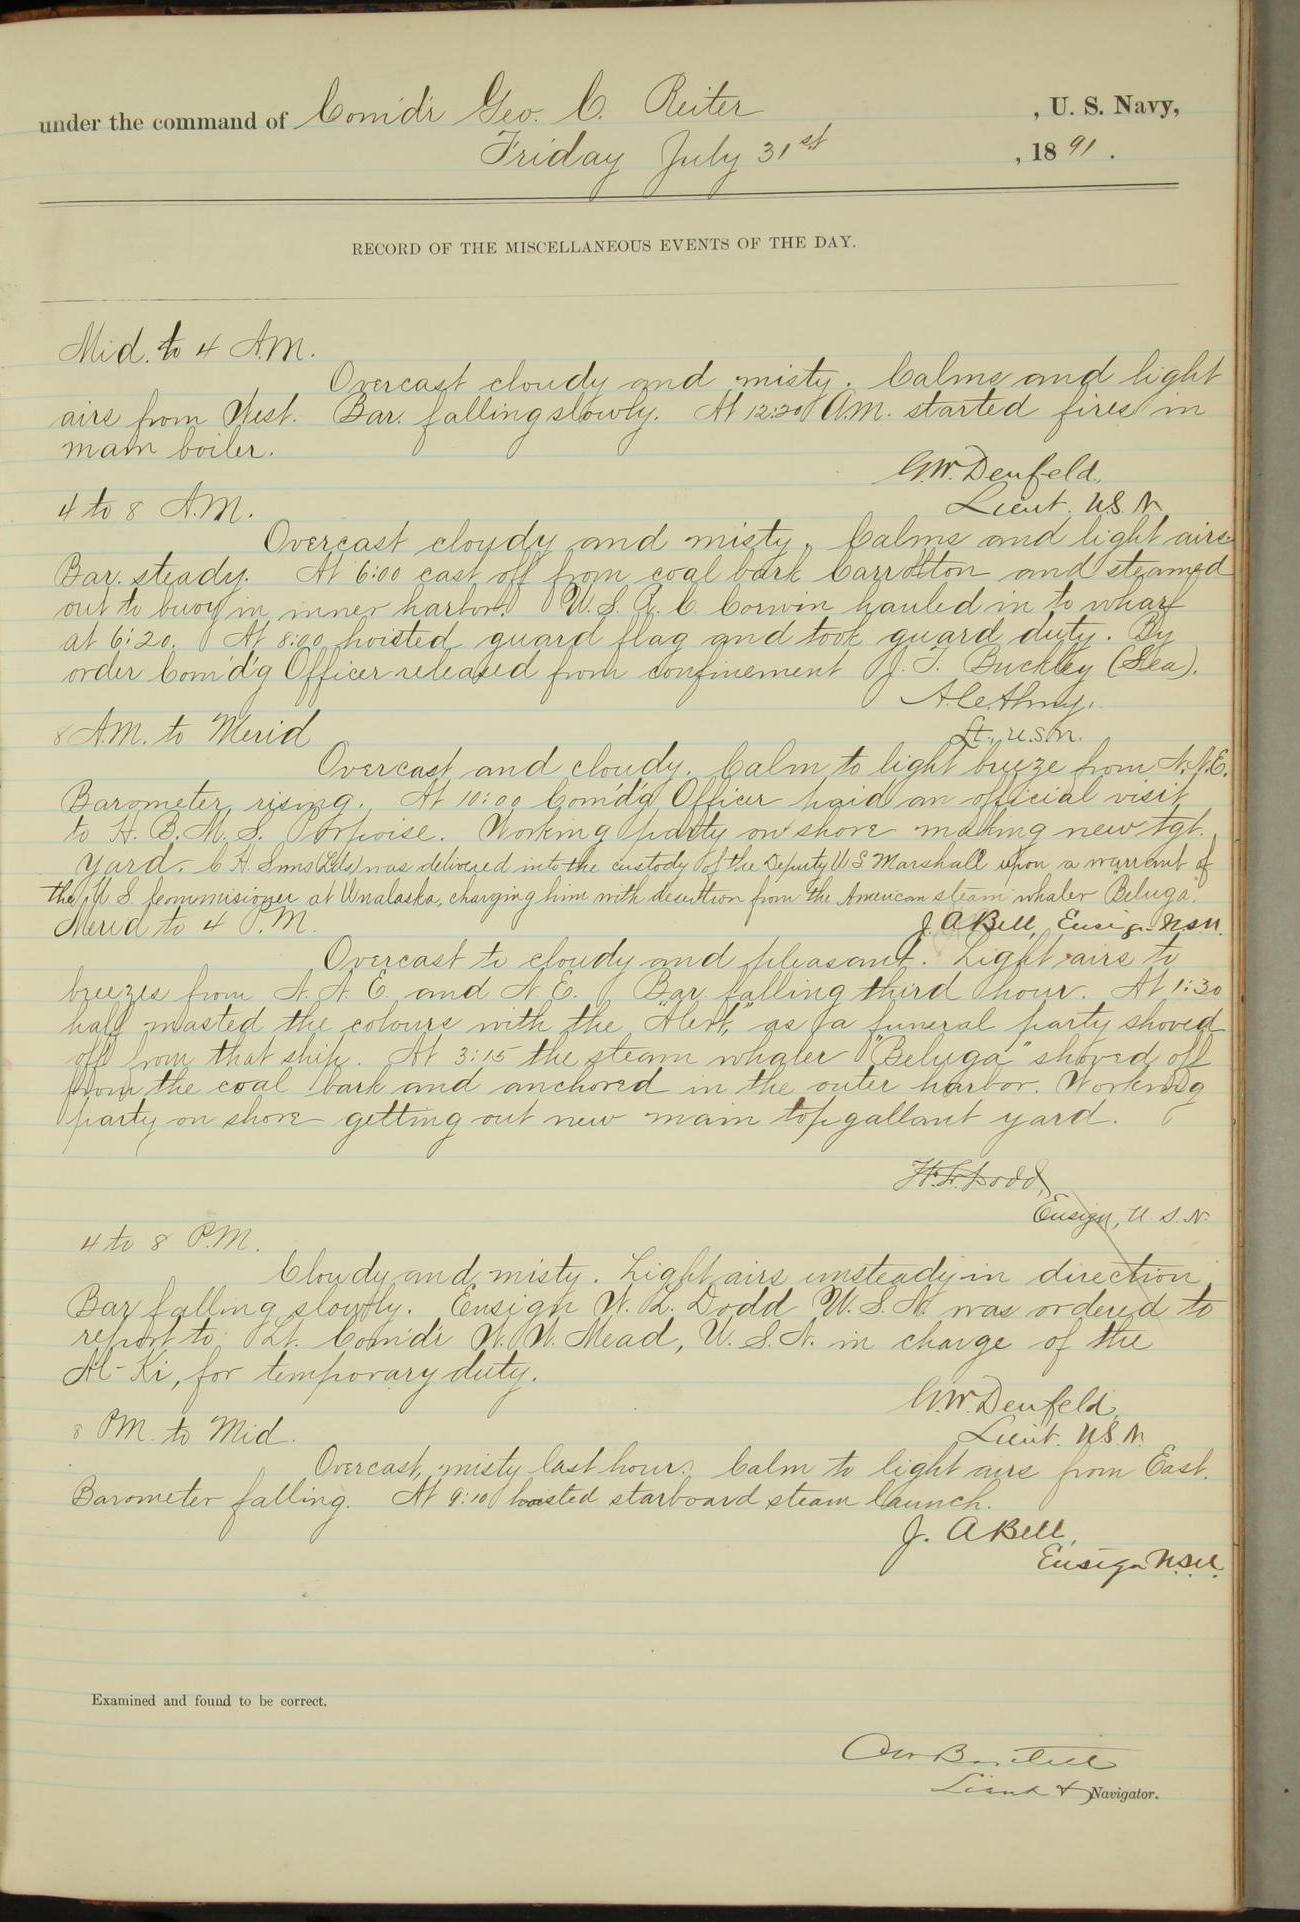 under the command of Comd'r Geo. C. Reiter , U. S. Navy,
Friday July 31st , 1891.
RECORD OF THE MISCELLANEOUS EVENTS OF THE DAY.
Mid. to 4 A.M.
Overcast cloudy and misty. Calms and light
airs from West. Bar. falling slowly. At 12:20 A.M. started fires in
main boiler.
G.W. Denfeld,
Lieut. U.S.N.
4 to 8 A.M.
Overcast cloudy and misty. Calms and light airs
Bar. steady. At 6:00 cast off from coal bark Carrolton and steamed
out to buoy in inner harbor. U.S.R.C. Corwin hauled in to wharf
at 6:20. At 8:00 hoisted guard flag and took guard duty. By
order Com'd'g Officer released from confinement J. T. Buckley (Sea).
Lt., U.S.N.
8 A.M. to Merid
Overcast and cloudy. Calm to light breeze from N.N.E.
Barometer rising. At 10:00 Com'd'g Officer paid an official visit
to H. B. M. S. Porpoise. Working party on shore making new tgt.
yard. C. H. Sims (Lds) was delivered into the custody of the Deputy U S Marshall upon a warrant of
the U. S. Commissioner at Unalaska, charging him with desertion from the American steam whaler "Beluga".
J. A Bell, Ensign U.S.N.
Merid to 4 P.M.
Overcast to cloudy and pleasant. Light airs to
breezes from N. N. E. and N. E. Bar. falling third hour. At 1:30
half masted the colours with the "Alert," as a funeral party shoved
off from that ship. At 3:15 the steam whaler "Beluga" shoved off
from the coal bark and anchored in the outer harbor. Working
party on shore getting out new main top gallant yard.
W.L. Dodd,
Ensign, U. S. N.
4 to 8 P.M.
Cloudy and misty. Light airs unsteady in direction.
Bar falling slowly. Ensign W. L. Dodd U. S. N. was ordered to
report to Lt. Comd'r W. W. Mead, U. S. N. in charge of the
Al-Ki, for temporary duty.
G.W. Denfeld,
Lieut. U.S.N.
8 P.M. to Mid.
Overcast, misty last hour. Calm to light airs from East.
Barometer falling. At 9:10 hoisted starboard steam launch.
J. A Bell,
Ensign U.S.N.
Examined and found to be correct.
Lieut & Navigator.